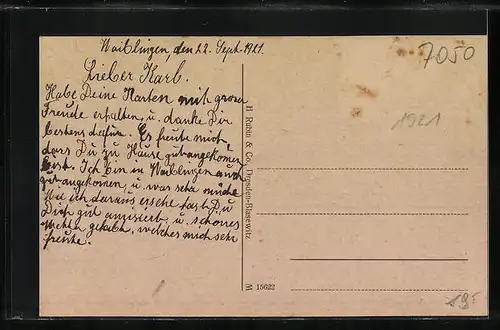 Waiblingen, den 22. Sept. 1921.
Lieber Karl.
Habe Deine Karten mit groser
Freude erhalten u. danke Dir
bestens dafür. Es freute mich,
dass Du zu Hause gut angekommen
bist. Ich bin in Waiblingen auch
gut angekommen u. war sehr müde
Wie ich daraus ersehe hast Du
Dich gut amüsiert u. schönes
gehabt, welches mich sehr
freute.
H Rubin & Co., Dresden-Blasewitz
M 15622
7050
1921
19.-